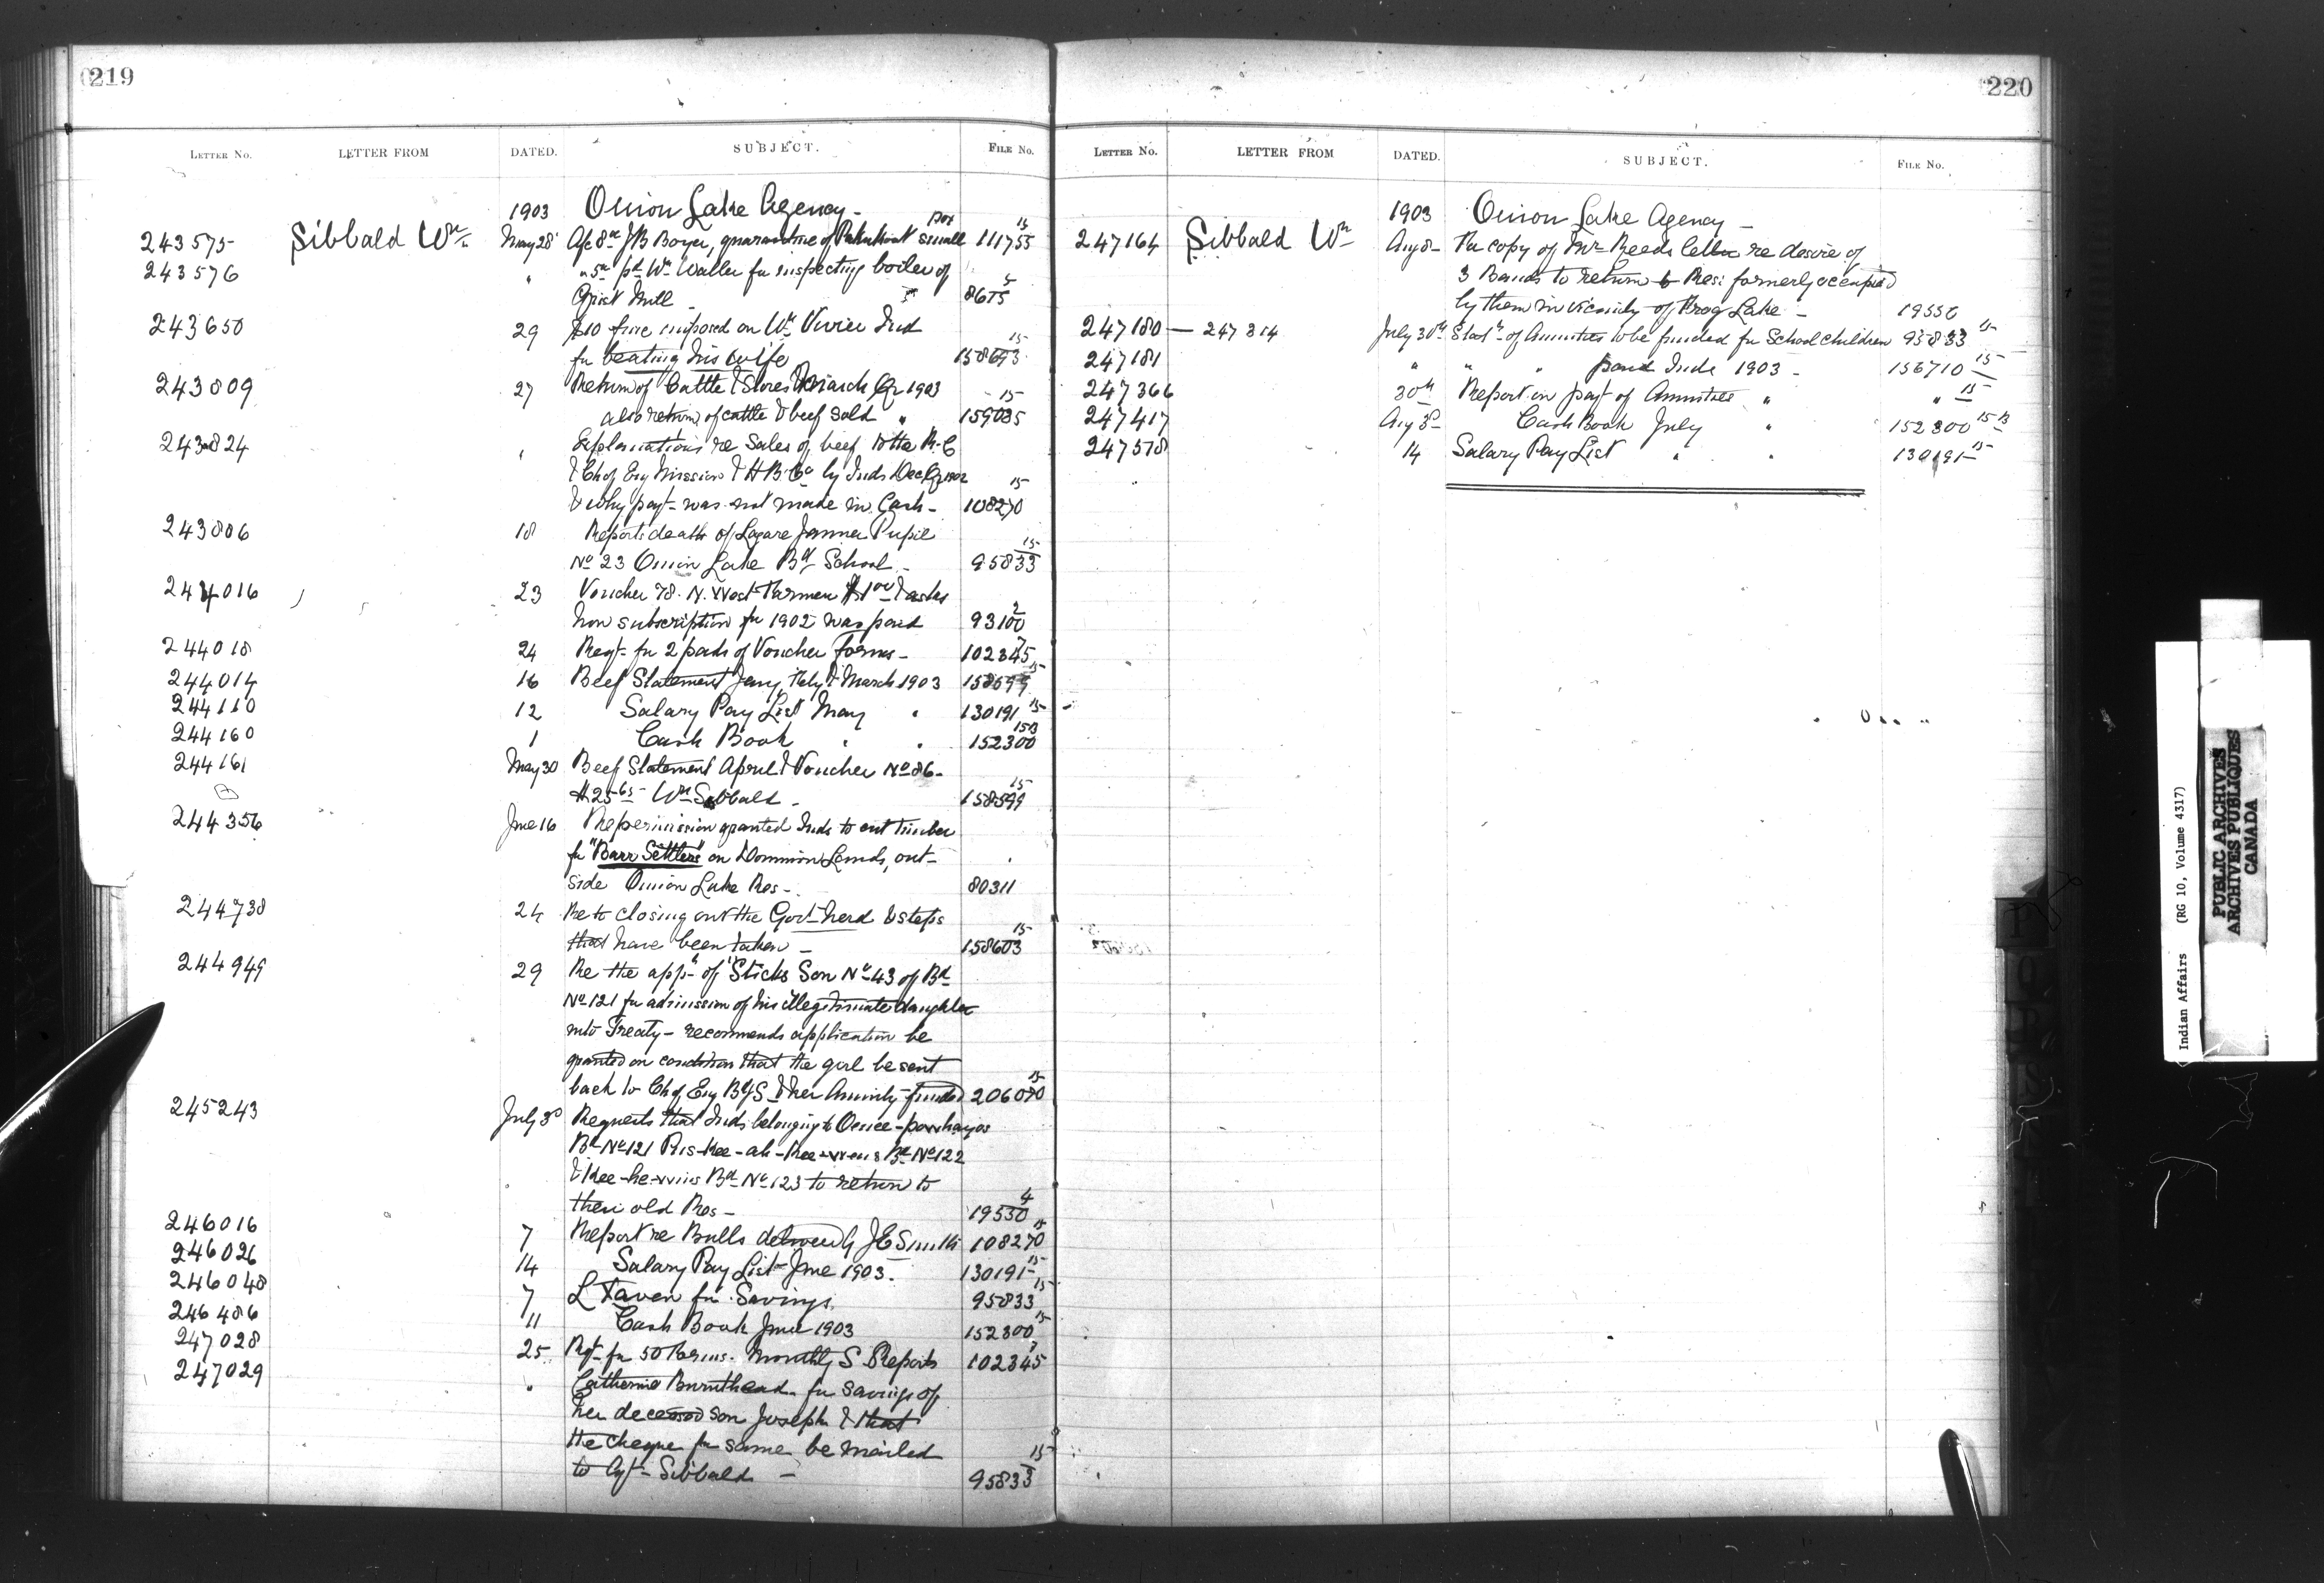 219
LETTER No. LETTER FROM DATED. SUBJECT. FILE No.
1903 Onion Lake Agency -
243575 Sibbald Wm May 28 A/c 8.00 J B Boyer, quarantine of small pox 15 111755
243576 " " 5.00 pd Wm Waller for inspecting boiler of
Grist Mill - 8675
243650 29 $10 fine imposed on Wm Vivier Ind
for beating his wife 15 158693
243809 27 Return of Cattle & Stores March Qr 1903
also return of cattle & beef sold " 15 159035
243824 " Explanations re Sales of beef to the R.C
& Ch of Eng Mission & H B. Co by Inds Dec Qr 1902
& why payt was not made in Cash - 15 108270
243806 18 Reports death of Lazare Pupil
No 23 Onion Lake Bd School - 15 95833
244016 23 Voucher 78. N. West Farmer $1.00 & asks
how subscription for 1902 was paid 2 93100
244018 24 Reqt for 2 pads of Voucher forms - 7 102345
244014 16 Beef Statement Jany, Feby & March 1903 15 158599
244110 12 Salary Pay List May " 15 130191
244160 1 Cash Book " " 15B 152300
244161 May 30 Beef Statement April & Voucher No 86 -
$25.65 Wm Sibbald - 15 158599
244356 June 16 Re permission granted Inds to cut timber
for "Barr Settlers" on Dominion Lands, out-
side Onion Lake Res - 80311
244738 24 Re to closing out the Govt herd & steps
that have been taken - 15 158603
244949 29 Re the appn of "Sticks Son No 43 of Bd
No 121 for admission of his illegitimate daughter
into Treaty - recommends application be
granted on condition that the girl be sent
back to Ch of Eng Bdg S. & her Annuity funded 15 206070
245243 July 3 Requests that Inds belonging to
Bd No 121 Bd No 122
& Bd No 123 to return to
their old Res - 4 19550
246016 7 Report re Bulls delivered by J E Smith 15 108270
246026 14 Salary Pay List June 1903. 15 130191
246048 7 L Taven for Savings. 15 95833
246486 11 Cash Book June 1903 15 152300
247028 25 Rqt for 50 Forms. Monthly S Reports 7 102345
247029 " Catherine Burnthead for savings of
her deceased son Joseph & that
the cheque for same be mailed
to Agt Sibbald - 15 95833
220
LETTER No. LETTER FROM DATED. SUBJECT. FILE No.
1903 Onion Lake Agency -
247164 Sibbald Wm Aug 8 Re copy of Mr Reeds letter re desire of
3 Bands to return to Res: formerly occupied
by them in vicinity of Frog Lake - 19550
247180 - 247314 July 30th Statt of Annuities to be funded for School children 95833 15
247181 " " " paid Inds 1903 - 156710 15
247366 30th Report on payt of Annuities " " 15
247417 Aug 3 Cash Book July " 152300 15B
247578 14 Salary Pay List " " 130191 15
Indian Affairs (RG 10, Volume 4317)
PUBLIC ARCHIVES
ARCHIVES PUBLIQUES
CANADA